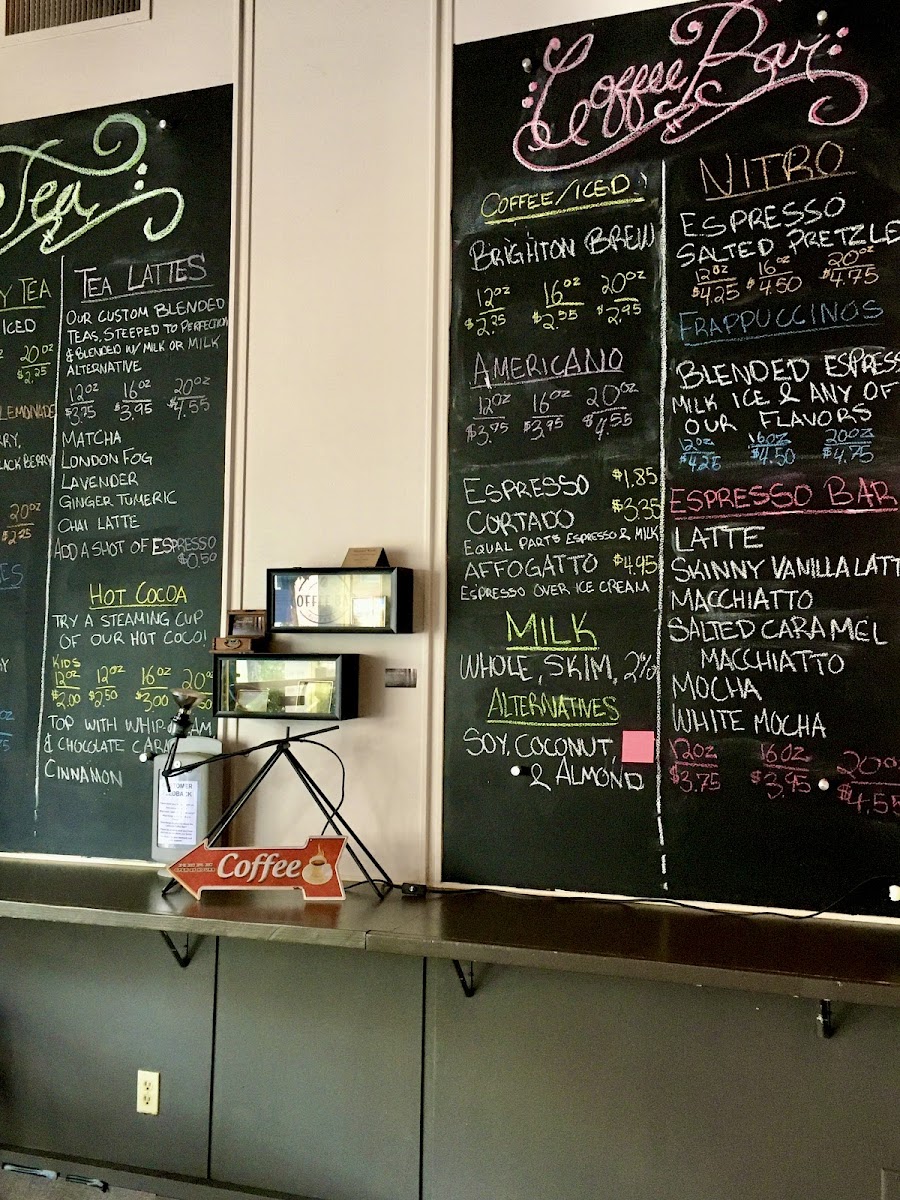 Tea
Y TEA
ICED
20oz
$2.25
LEMONADE
RRY,
LACKBERRY
20oz
$2.25
ES
TEA LATTES
OUR CUSTOM BLENDED
TEAS, STEEPED TO PERFECTION
& BLENDED W/ MILK OR MILK
ALTERNATIVE
12oz 16oz 20oz
$3.75 $3.95 $4.55
MATCHA
LONDON FOG
LAVENDER
GINGER TUMERIC
CHAI LATTE
ADD A SHOT OF ESPRESSO
$0.50
HOT COCOA
TRY A STEAMING CUP
OF OUR HOT COCO!
KIDS
12oz 12oz 16oz 20oz
$2.00 $2.50 $3.00
TOP WITH
& CHOCOLATE
CINNAMON
Coffee
Coffee Bar
COFFEE/ICED
BRIGHTON BREW
12oz 16oz 20oz
$2.25 $2.55 $2.95
AMERICANO
12oz 16oz 20oz
$3.75 $3.95 $4.55
ESPRESSO $1.85
CORTADO $3.35
EQUAL PARTS ESPRESSO & MILK
AFFOGATTO $4.45
ESPRESSO OVER ICE CREAM
MILK
WHOLE, SKIM, 2%
ALTERNATIVES
SOY, COCONUT,
& ALMOND
NITRO
ESPRESSO
SALTED PRETZLE
12oz 16oz 20oz
$4.25 $4.50 $4.75
FRAPPUCCINOS
BLENDED ESPRESS
MILK ICE & ANY OF
OUR FLAVORS
12oz 16oz 20oz
$4.25 $4.50 $4.75
ESPRESSO BAR
LATTE
SKINNY VANILLA LATT
MACCHIATTO
SALTED CARAMEL
MACCHIATTO
MOCHA
WHITE MOCHA
12oz 16oz 20oz
$3.75 $3.95 $4.55